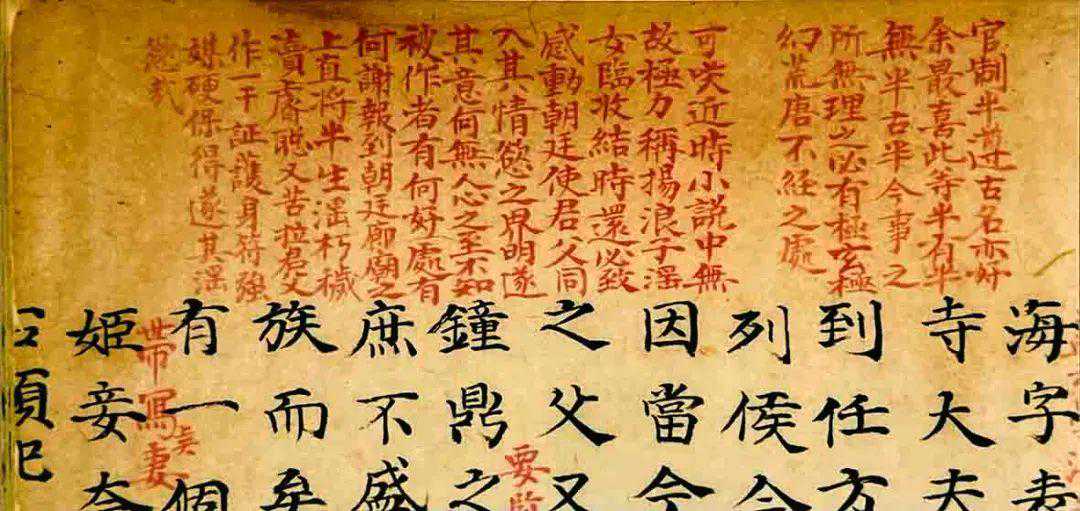 官制半遵古名亦好
余最喜此等半有半
無半古半今事之
所無理之必有極玄極
幻荒唐不經之處
可咲近時小說中無
故極力稱揚浪子滛
女臨收結時還必致
感動朝廷使君父同
入其情慾之界明遂
其意何無人心之至不知
被作者有何好處有
何謝報到朝廷廊廟之
上直將半生滛朽穢
瀆睿聰又苦拉君父
作一干証護身符強
媒硬保得遂其滛
慾哉
海字表
寺大夫
到任方
列侯今
因當今
之父又
要
鐘鼎之
庶不盛
族而
有一個
帶寫妻
姬妾